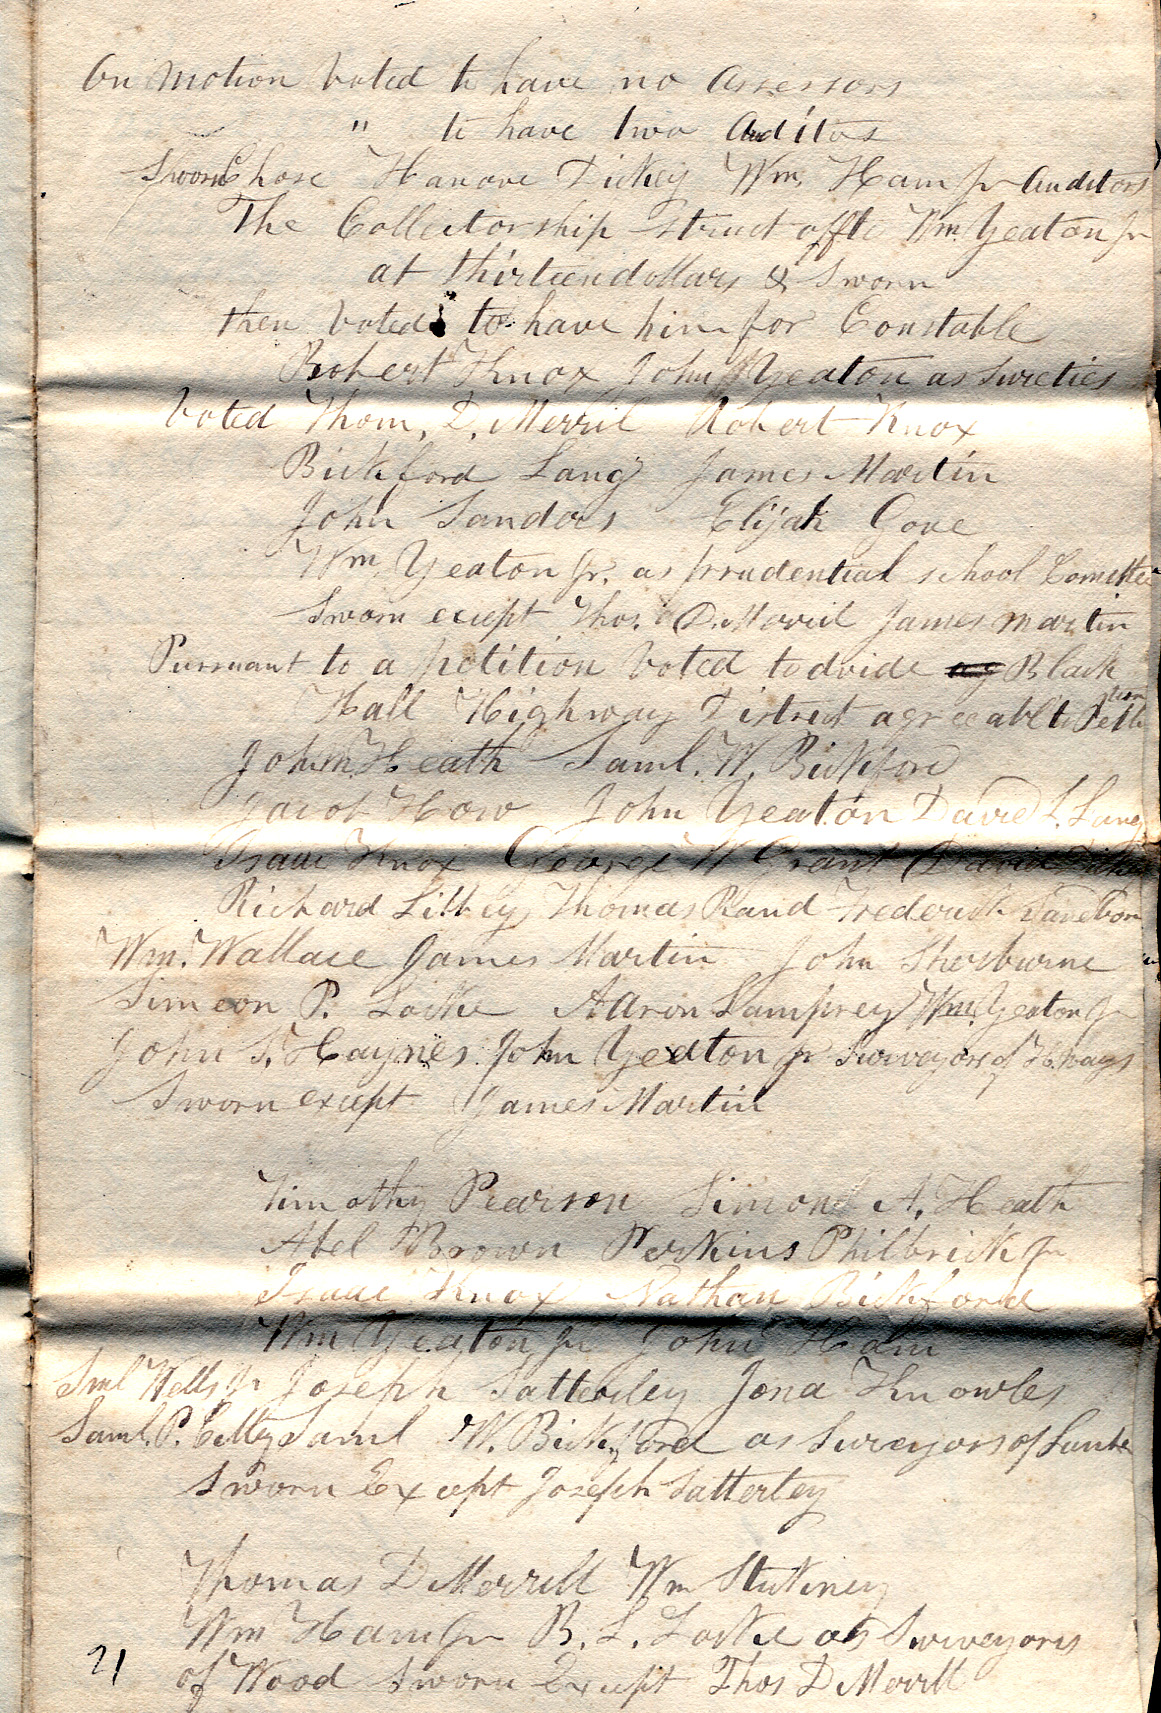 On Motion Voted to have no Assessors
" to have two Auditors
Sworn Chose Hanove Dickey Wm Ham Jr Auditors
The Collectorship struct off to Wm. Yeaton Jr
at thirteen dollars & Sworn
then Voted to have him for Constable
Robert Knox John Yeaton as Sureties
Voted Thom. D. Merril Robert Knox
Bickford Lang James Martin
John Sanders Elijah Gove
Wm Yeaton Jr. as prudential school Comittee
Sworn except Thos. D. Merril James Martin
Pursuant to a petition Voted to divide Black
Hall Highway District agreeable to Petition
John M Heath Saml. W. Bickford
Jacob How John Yeaton David L. Lang
Isaac Knox George W Grant David
Richard Libbey Thomas Rand Frederick
Wm. Wallace James Martin John Sherburne
Simeon P. Locke Aaron Lamprey Wm. Yeaton Jr
John S. Haynes John Yeaton Jr Surveyors of H.ways
Sworn except James Martin
Timothy Pearson Simond A. Heath
Abel Brown Perkins Philbrick Jr
Isaac Knox Nathan Bickford
Wm Yeaton Jr John Ham
Sml Wells Jr Joseph Satterley Jona Knowles
Saml. P. Saml W. Bickford as Surveyors of
Sworn Except Joseph Satterley
Thomas D Merrill Wm Stickney
Wm Ham Jr B. L. Locke as Surveyors
of Wood Sworn Except Thos D Merrill
21